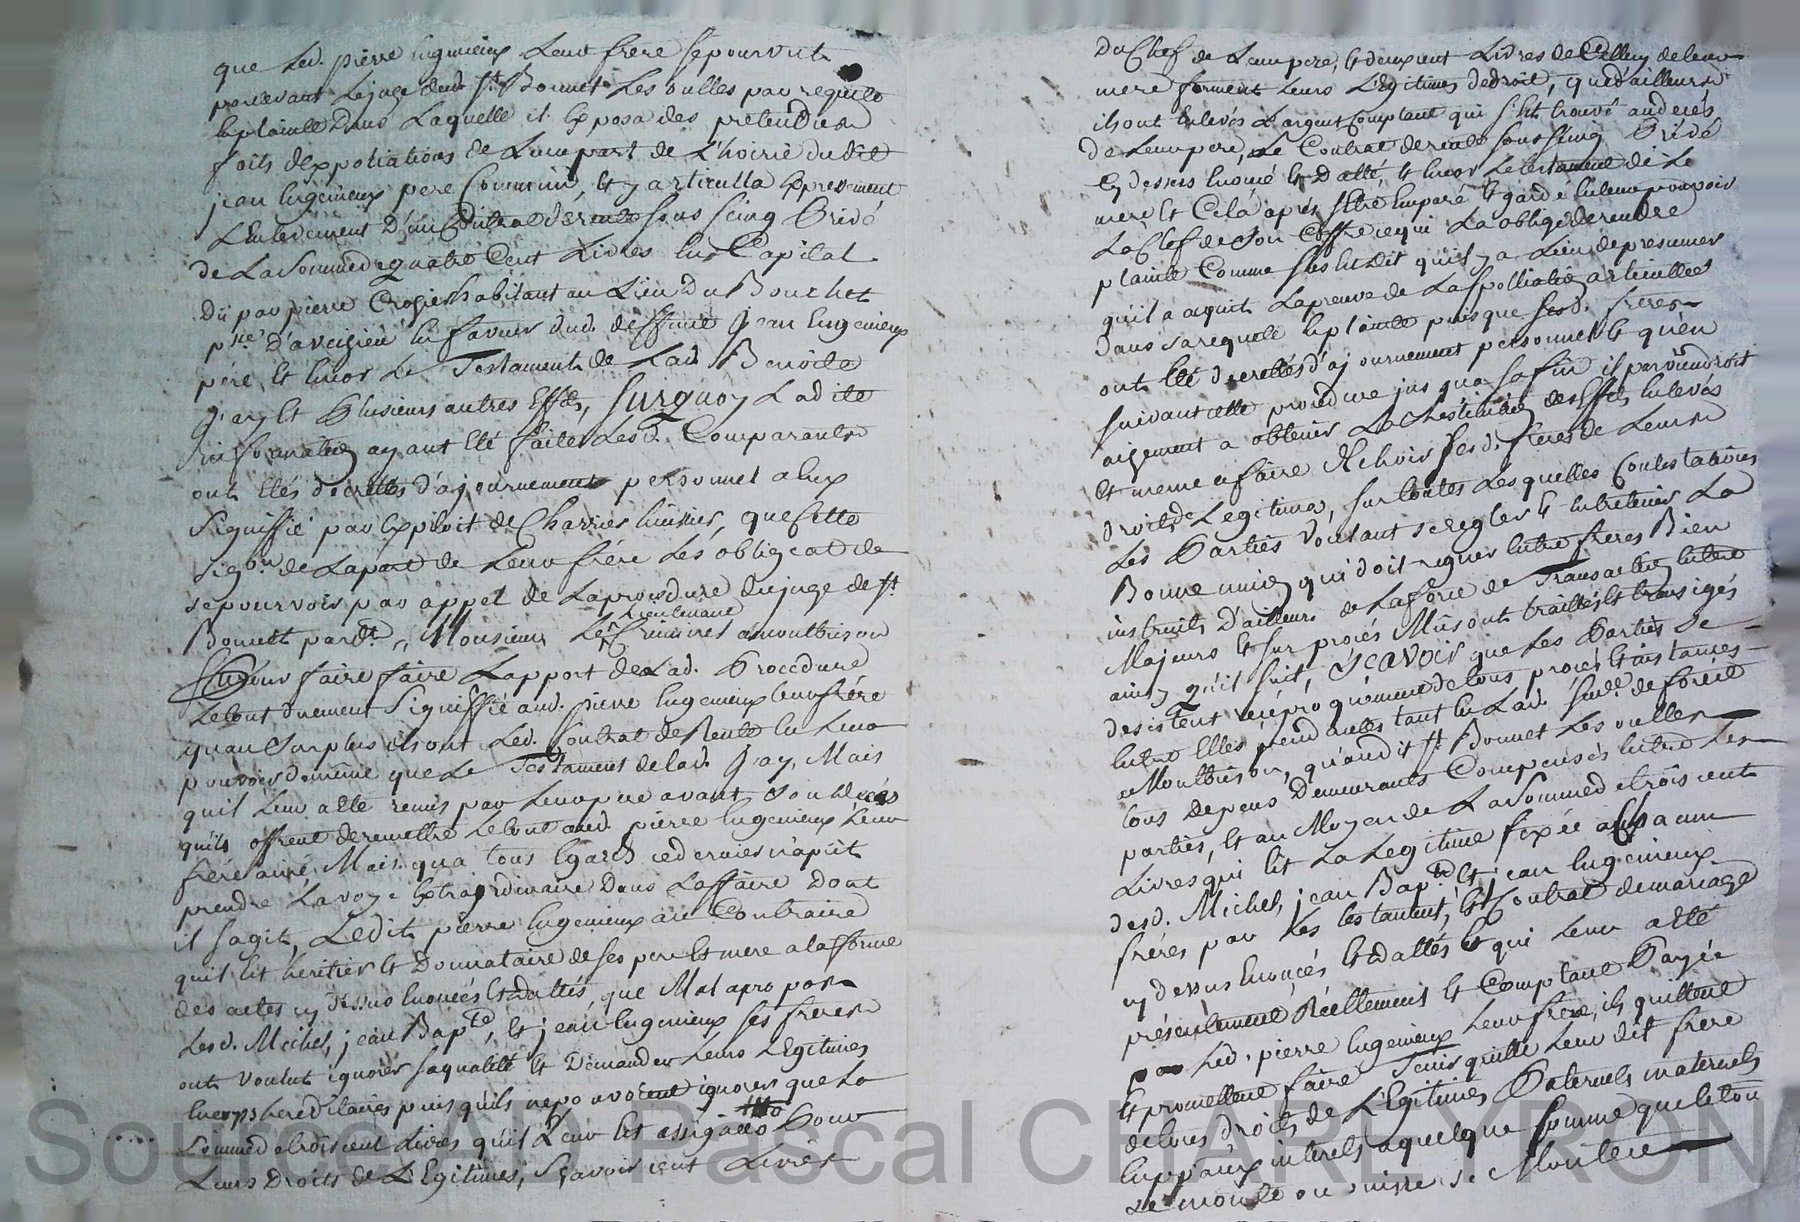 que led. pierre ingenieux leur frere se pourvut
pardevant le juge dud. St Bonnet les oulles par requete
en plainte dans laquelle il exposa des pretendus
faits d'expoliations de leur part de l'hoirie dudit
jean ingenieux pere commun, et y articulla expressement
l'enlevement d'un contrat de rente sous seing privé
de la somme de quatre cent livres en capital
dü par pierre Crozier habitant au lieu du Bouchet
psse d'aveizieu en faveur dud. deffunt jean ingenieux
père, et encor le Testament de lad. Benoite
jay et plusieurs autres effets, surquoy ladite
information ayant eté faite lesd. comparants
ont étés décrettés d'ajournement personnel a eux
signiffié par exploit de Charrier huissier, que cette
sigon de la part de leur frère les obligeat de
se pourvoir par appel de la procedure du juge de St
Bonnet pardt Monsieur le lieutenant criminel a montbrison
pour faire faire l'apport de lad. procedure
le tout duement signiffié aud. pierre ingenieux leur frére
quau surplus ils ont led. contrat de rente en leur
pouvoir de même que le Testament de lad. jay, Mais
quil leur a eté remis par leur pere avant son decés
quils offrent de remettre le tout aud. pierre ingenieux leur
frére ainé, Mais qua tous egards ce dernier n'a püt
prendre la voye extraordinaire dans l'affaire dont
il sagit, Ledit pierre ingenieux au contraire
quil est heritier et donnataire de ses pere et mere a la forme
des actes cy dessus enoncés et dattés, que Mal a propos
lesd. Michel, jean Bapte, et jean ingenieux ses freres
ont voulut ignorer sa qualité et demander leurs legitimes
en corps hereditaires puis quils ne pouvoient ignorer que la
somme de trois cent livres qu'il leur est assignée pour
leurs droits de legitimes, sçavoir cent livres
du chef de leur pere, et deux cent livres de celluy de leur
mere forment leurs legitimes de droit, que d'ailleurs
ils ont enlevés l'argent comptant qui s'est trouvé au decés
de leur pere, le contrat de rente sous seing privé
cy dessus enoncé et datté et encor le testament de le
mere et cela aprés s'etre emparé et gardé en leur pouvoir
la clef de son coffre ce qui la obligé de rendre
plainte comme sus est dit qu'il y a lieu de presumer
qu'il a acquit la preuve de la spolliation articullée
dans sa requete en plainte puisque sesd. freres
ont eté decretés d'ajournement personnel et qu'en
suivant cette procedure jus qua sa fin il parviendroit
aisement a obtenir la restitution des effets enlevés
et meme a faire dechoir sesd. freres de leurs
droits de legitime, sur toutes lesquelles contestations
les parties voulant se regler et entretenir la
Bonne union qui doit regner entre freres Bien
instruits d'ailleurs de la force de Transaction entre
Majeurs et sur procés Mus ont traittés et transigés
ainsy qu'il suit, sçavoir que les parties se
desistent reciproquement de tous procés et instances
entre elles pendantes tant en lad. senée de foréz
a Montbrison, qu'audit St Bonnet les oulles
tous depens demeurants compensés entre les
parties, et au Moyen de la somme de trois cent
livres qui est la legitime fixée a chacun
desd. Michel, jean Bapte et jean ingenieux
fréres par les testament, et contrat de mariage
cy dessus enoncés et dattés et qui leur a eté
présentement Réellement et comptant payée
par led. pierre ingenieux leur frere, ils quittent
et promettent faire tenir quitte leur dit frere
de tous droits de legitimes paternels maternels
suppl interets a quelque somme que le tout
se monte ou puisse se Monter
Source AD Pascal CHARLYRON